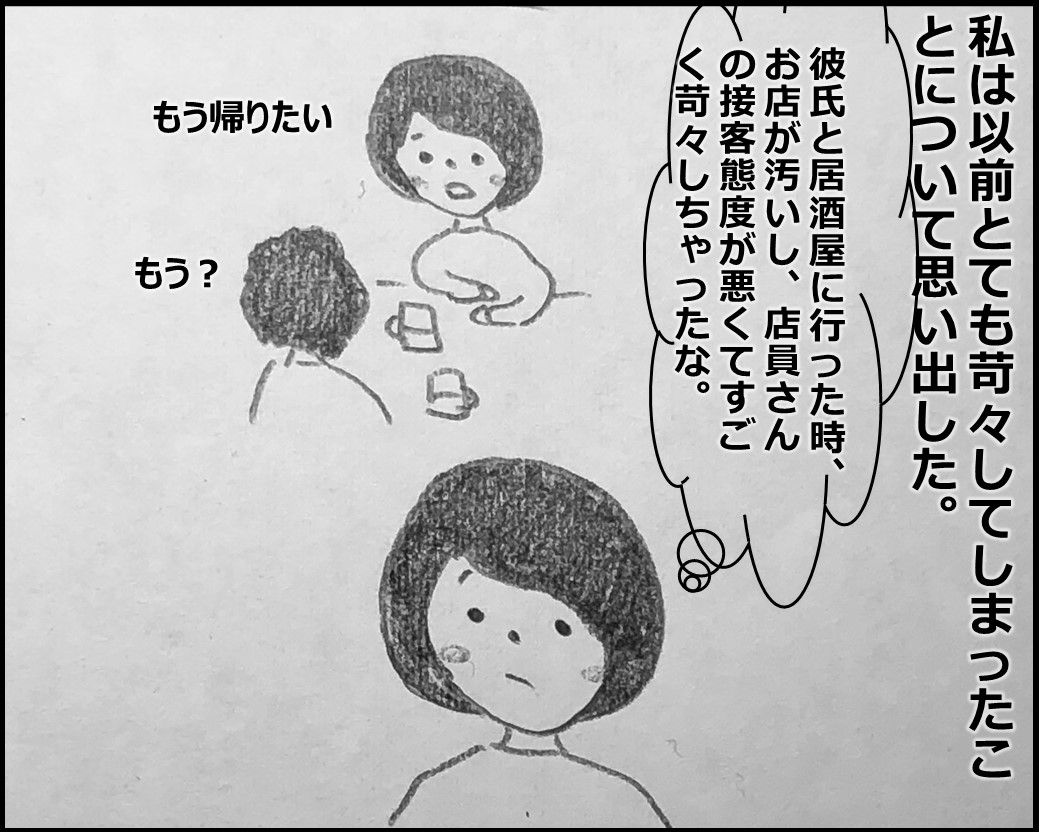 私は以前とても苛々してしまったこ
とについて思い出した。
彼氏と居酒屋に行った時、
お店が汚いし、店員さん
の接客態度が悪くてすご
く苛々しちゃったな。
もう帰りたい
もう？